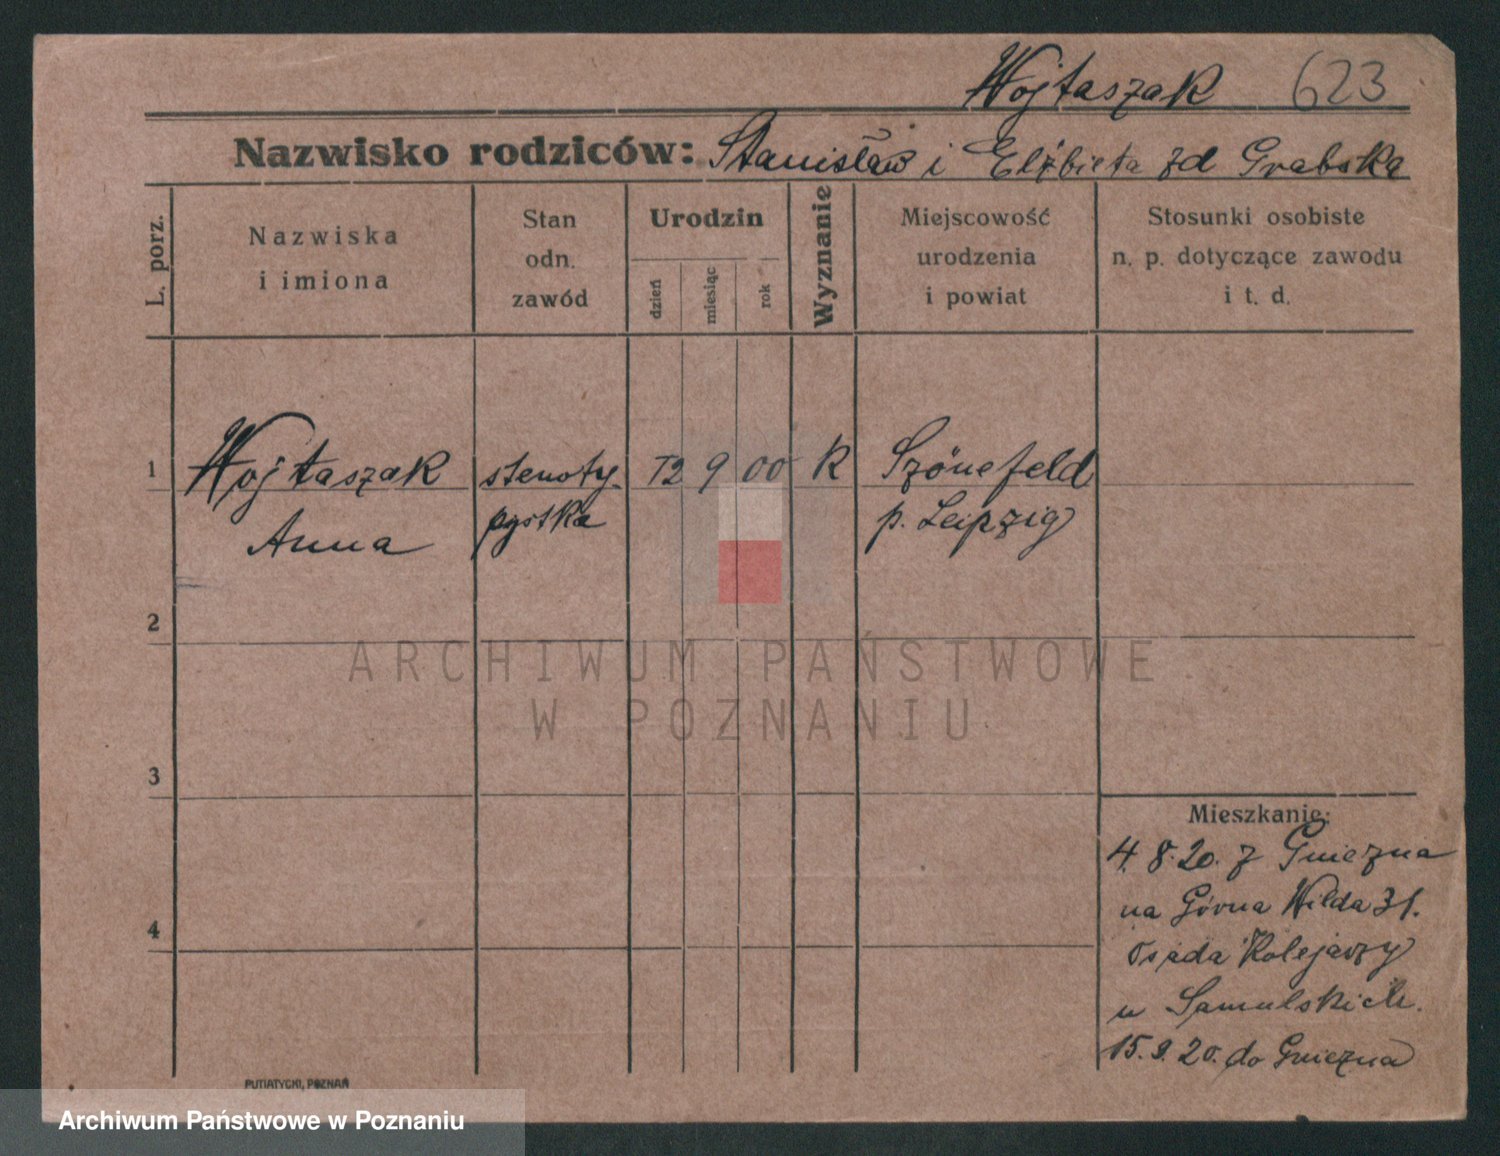 Wojtaszak 623
Nazwisko rodziców: Stanisław i Elżbieta zd Grabska
L. porz.
Nazwiska
i imiona
Stan
odn.
zawód
Urodzin
dzień
miesiąc
rok
Wyznanie
Miejscowość
urodzenia
i powiat
Stosunki osobiste
n. p. dotyczące zawodu
i t. d.
1 Wojtaszak stenoty- 12 9 00 K Szönefeld
Anna pystka p. Leipzig
2
ARCHIWUM PAŃSTWOWE
W POZNANIU
3
Mieszkanie:
4. 8. 20. z Gniezna
na Górna Wilda 31.
4
Osada Kolejarzy
u Samulskich.
15. 9. 20. do Gniezna
PUTIATYCKI, POZNAŃ
Archiwum Państwowe w Poznaniu